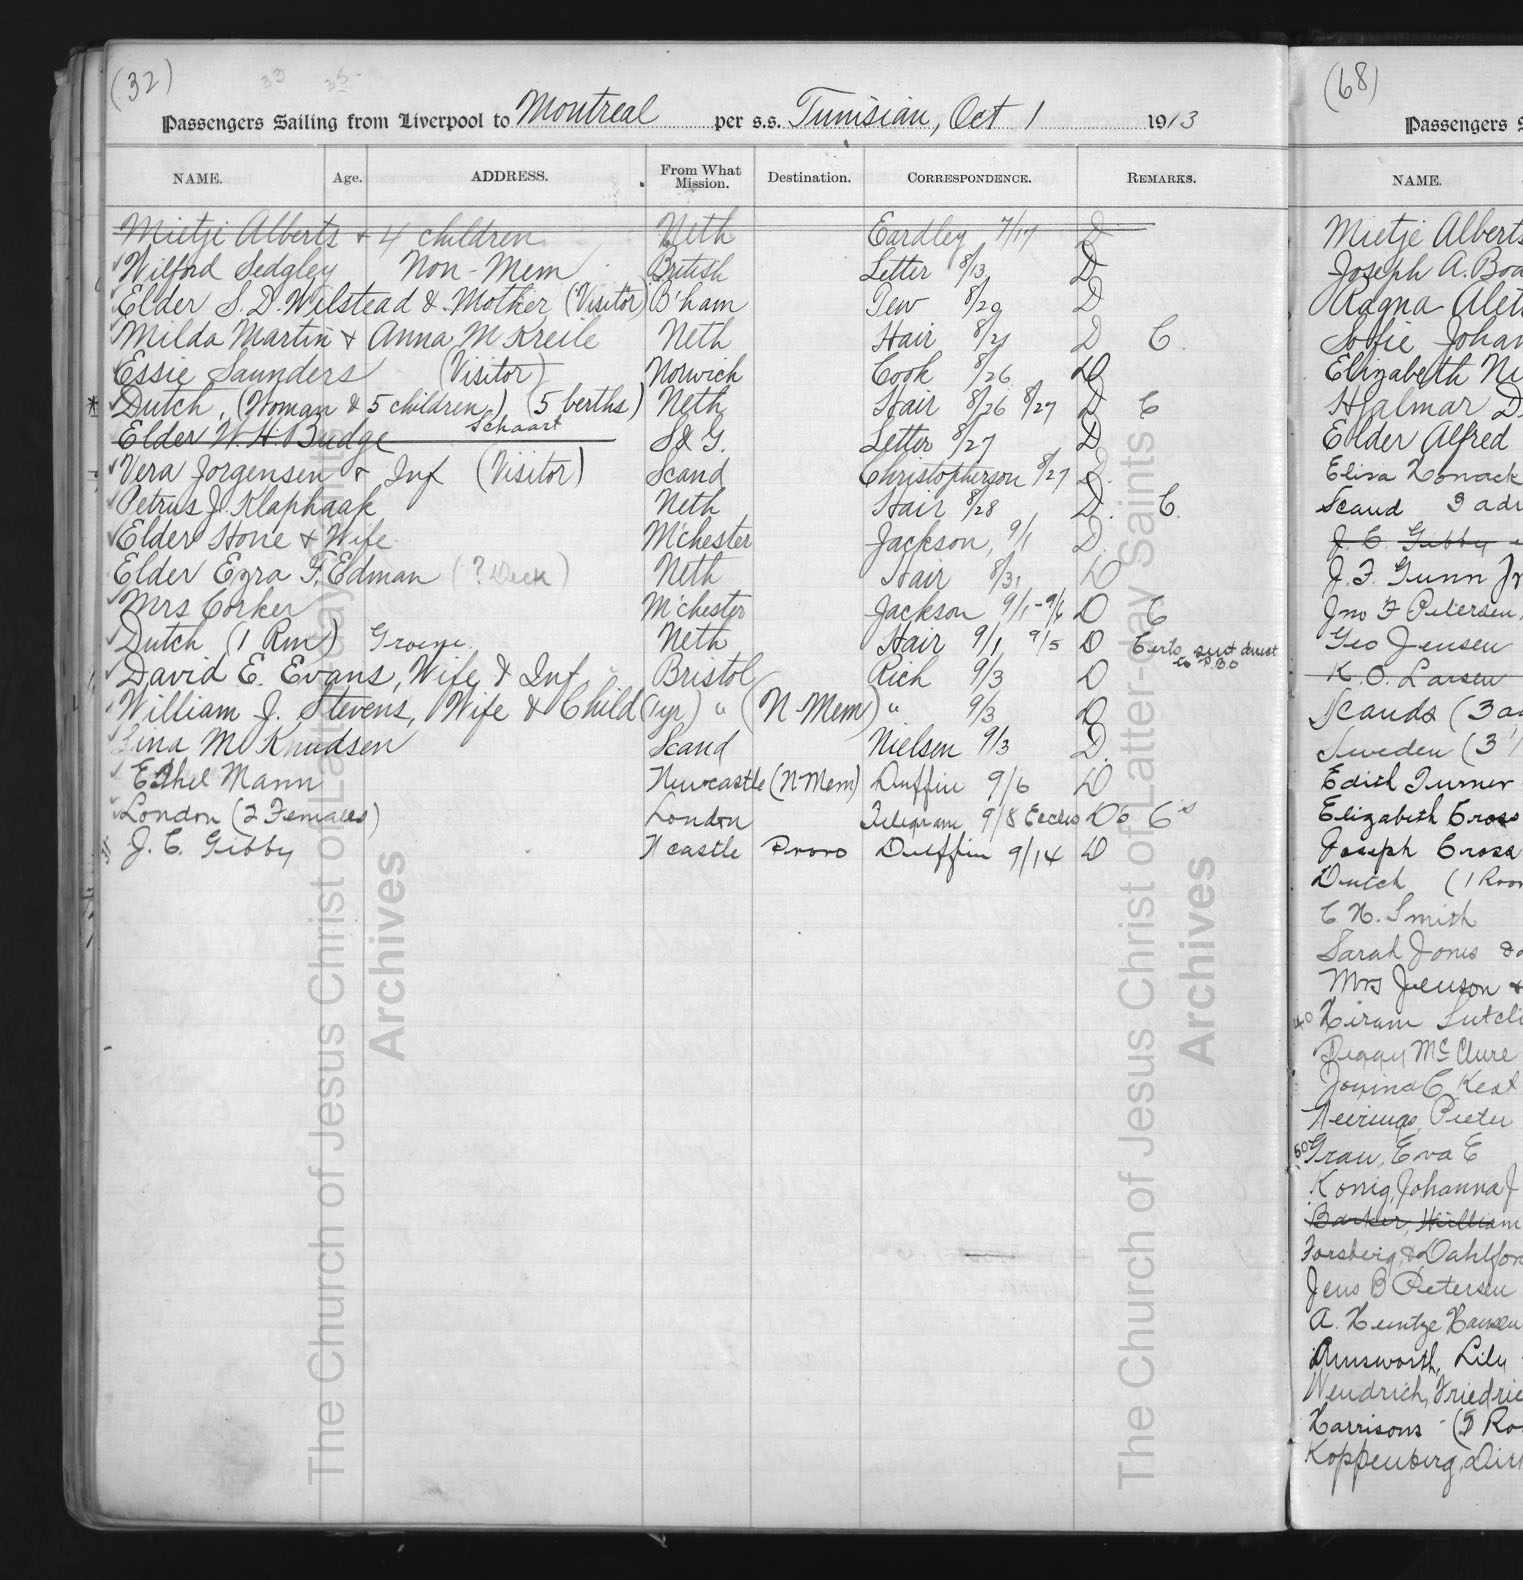 (32) 33 35
Passengers Sailing from Liverpool to Montreal per s.s. Tunisian, Oct 1 1913
NAME. Age. ADDRESS. From What Mission. Destination. CORRESPONDENCE. REMARKS.
Mietje Alberts + 4 children Neth Eardley 7/17 D
Wilford Sedgley Non-Mem British Letter 8/13 D
Elder S. D. Wilstead & Mother (Visitor) B'ham Tew 8/20 D
Milda Martin + Anna M Kreile Neth Hair 8/21 D C.
Essie Saunders (Visitor) Norwich Cook 8/26 D
Dutch, (Woman & 5 children) (5 berths) Neth Hair 8/26 8/27 D C
Schaart
Elder W. H. Budge S & G. Letter 8/27 D
Vera Jorgensen + Inf (Visitor) Scand Christopherson 8/27 D.
Petrus J. Klaphaak Neth Hair 8/28 D. C.
Elder Hone + Wife M'chester Jackson, 9/1 D
Elder Ezra F. Edman (? Deck) Neth Hair 8/31 D
Mrs Corker M'chester Jackson 9/1-9/6 D C
Dutch (1 Rm) Neth Hair 9/1 9/5 D
David E. Evans, Wife & Inf. Bristol Rich 9/3 D
William J. Stevens, Wife & Child (1yr) " (N-Mem) " 9/3 D
Lina M. Knudsen Scand Nielsen 9/3 D.
Ethel Mann Newcastle (N-Mem) Duffin 9/6 D
London (2 Females) London Telegram 9/8 Eccles Do C's
J. C. Gibby N'castle Provo Duffin 9/14 D
(68)
Passengers S
NAME.
Mietje Alberts
Joseph A. Boa
Ragna Alet
Sofie Johan
Elizabeth Ni
Hjalmar D
Elder Alfred
Elisa Konack
Scand 3 adu
J. C. Gibby
J. F. Gunn Jr
Jno F Petersen,
Geo Jensen
K. O. Larsen
Scands (3 ad
Sweden (3
Edith Turner
Elizabeth Cross
Joseph Cross
Dutch (1 Room
C H. Smith
Sarah Jones
Mrs Jenson +
40 Hiram Sutcli
Peggy McClure
Jovina C Keat
Neerings, Pieter
50 Grau, Eva E
Konig, Johanna J
Barker, William
Forsberg, & Dahlfor
Jens B Petersen
A. Heintze Hansen
Ainsworth, Lily
Wendrich, Friedrie
Harrisons - (5 Roo
Koppenberg, Dirk
The Church of Jesus Christ of Latter-day Saints
Archives
The Church of Jesus Christ of Latter-day Saints
Archives